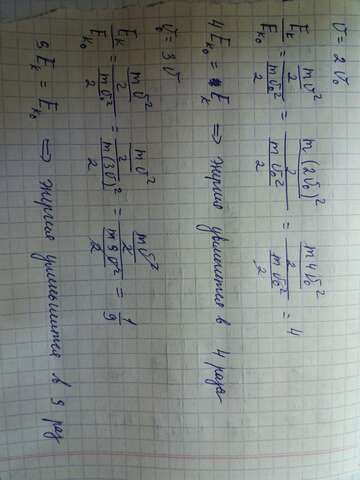 v = 2 v₀
Eₖ/Eₖ₀ = (mv²/2)/(mv₀²/2) = (m(2v₀)²/2)/(mv₀²/2) = (m4v₀²/2)/(mv₀²/2) = 4
4Eₖ₀ = Eₖ ⇒ энергия увеличится в 4 раза
v₀ = 3 v
Eₖ/Eₖ₀ = (mv²/2)/(mv₀²/2) = (mv²/2)/(m(3v)²/2) = (mv²/2)/(m9v²/2) = 1/9
9Eₖ = Eₖ₀ ⇒ энергия уменьшится в 9 раз